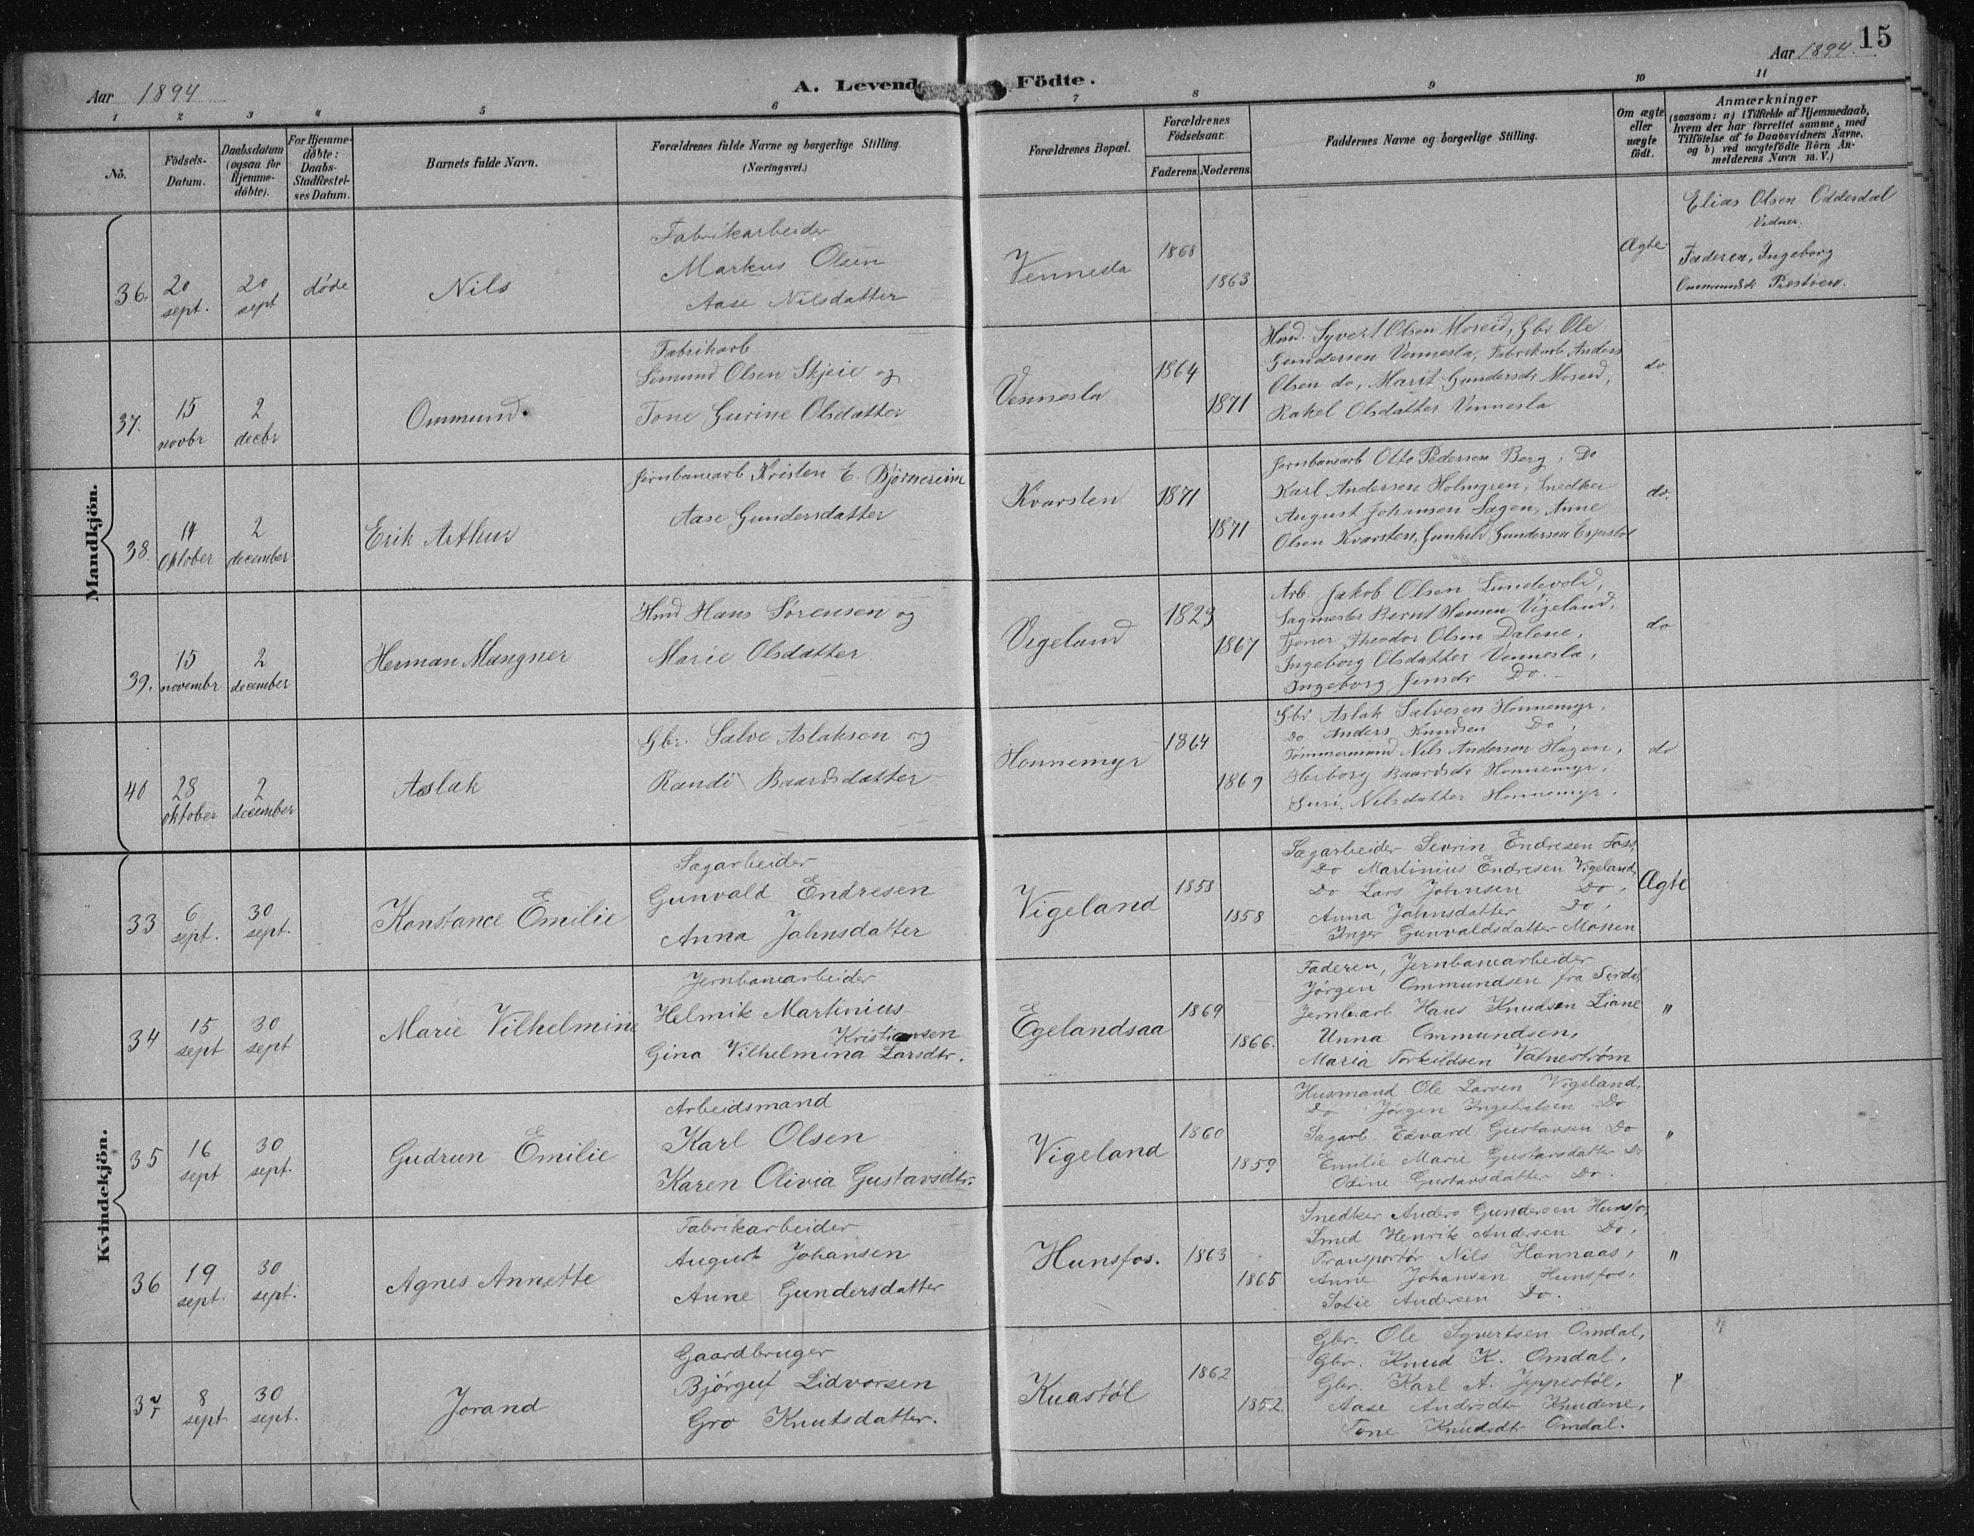 15
Aar 1894
A. Levende Födte.
Aar 1894.
1 2 3 4 5 6 7 8 9 10 11
No.
Födsels-
Datum.
Daabsdatum
(ogsaa for
Hjemme-
döbte).
For Hjemme-
döbte:
Daabs-
Stadfæstel-
ses Datum.
Barnets fulde Navn.
Forældrenes fulde Navne og borgerlige Stilling.
(Næringsvei.)
Forældrenes Bopæl.
Forældrenes
Födselsaar.
Faderens. Moderens.
Faddernes Navne og borgerlige Stilling.
Om ægte
eller
uægte
födt.
Anmærkninger
(saasom: a) i Tilfælde af Hjemmedaab,
hvem der har forrettet samme, med
Tilföielse af to Daabsvidners Navne,
og b) ved uægtefödte Börn An-
melderens Navn m. V.)
Mandkjön.
36.
20
sept.
20
sept
døde
Nils
Fabrikarbeider
Markus Olsen
Aase Nilsdatter
Vennesla
1868
1863
Ægte
Elias Olsen Odderdal
Vidner.
Faderen, Ingeborg
37.
15
novbr
2
decbr
Ommund.
Fabrikarb
Simund Olsen Skjeie og
Tone Gurine Olsdatter
Vennesla
1864
1871
Hmd. Syvert Olsen Moseid, Gbr Ole
Gundersen Vennesla, Fabrikarb Anders
Olsen do, Marit Gundersdr Moseid,
Rakel Olsdatter Vennesla
do.
38.
14
Oktober
2
december
Erik Arthur
Jernbanearb Kristen E. Bjørnereim
Aase Gundersdatter
Kvarsten
1871
1871
Jernbanearb Otto Pedersen Berg, Do
Karl Andersen Holmgren, Snedker
August Johansen Sagen, Anne
Olsen Kvarsten, Gunhild Gundersen Espestøl
do.
39.
15
novembr
2
december
Herman Mangner
Hmd Hans Sørensen og
Marie Olsdatter
Vigeland
1823
1867
Arb. Jakob Olsen Lundevold,
Sagmester Bernt Hansen Vigeland,
Tjener Theodor Olsen Dalene,
Ingeborg Olsdatter Vennesla,
Ingeborg Jensdr Do.
do
40
28
oktober
2
december
Aslak
Gbr. Salve Aslaksen og
Randi Baardsdatter
Honnemyr
1864
1869
Gbr Aslak Salvesen Honnemyr,
Do Anders Knudsen Do,
Tømmermand Nils Andersen Hagen,
Herborg Baardsdr Honnemyr,
Guri Nilsdatter Honnemyr.
do
Kvindekjön.
33
6
sept.
30
sept.
Konstance Emilie
Sagarbeider
Gunvald Endresen
Anna Jahnsdatter
Vigeland
1858
1858
Sagarbeider Sevrin Endresen
Do Martinius Endresen Vigeland,
Do Lars Johnsen Do,
Anna Jahnsdatter Do,
Inger Gunvaldsdatter Mosen
Ægte
34
15
sept
30
sept
Marie Vilhelmine
Jernbanearbeider
Helmik Martinius
Kristiansen
Gina Vilhelmina Larsdtr.
Egelandsaa
1869
1866.
Faderen, Jernbanearbeider
Jørgen Ommundsen fra Sirdal,
Jernbarb Hans Knudsen Liane
Unna Ommundsen,
Maria Torkildsen Vatnestrøm
"
35
16
sept
30
sept.
Gudrun Emilie
Arbeidsmand
Karl Olsen
Karen Olivia Gustavsdtr.
Vigeland
1860
1859
Husmand Ole Larsen Vigeland,
Do Jørgen Ingebretsen Do
Sagarb Edvard Gustavsen Do
Emilie Marie Gustavsdatter Do
Odine Gustavsdatter Do.
"
36
19
sept.
30
sept.
Agnes Annette
Fabrikarbeider
August Johansen
Anne Gundersdatter
Hunsfos.
1863
1865
Snedker Anders Gundersen Hunsfos,
Smed Henrik Andersen Do,
Transportør Nils Hannaas,
Anne Johansen Hunsfos,
Sofie Andersen Do.
"
37
8
sept
30
sept.
Jorand
Gaardbruger
Bjørguf Lidvorsen
Gro Knutsdatter.
Kuastøl
1862
1852.
Gbr. Ole Syvertsen Omdal,
Gbr. Knud K. Omdal,
Gbr. Karl A. Jppestøl,
Aase Andrsdtr Knudene,
Tone Knudsdtr Omdal.
"